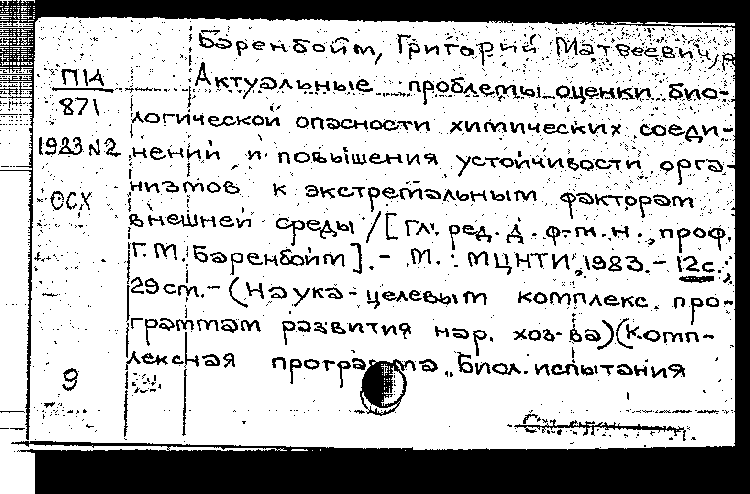 Баренбойм, Григорий Матвеевич
П14
871
1983 N2
ОСХ
9
Актуальные проблемы оценки био-
логической опасности химических соеди-
нений и повышения устойчивости орга-
низмов к экстремальным факторам
внешней среды / [Гл. ред. д. ф.-м. н., проф.
Г. М. Баренбойм]. - М. : МЦНТИ, 1983. - 12с.;
29см. - (Наука - целевым комплекс. про-
граммам развития нар. хоз-ва) (Комп-
лексная программа „Биол. испытания